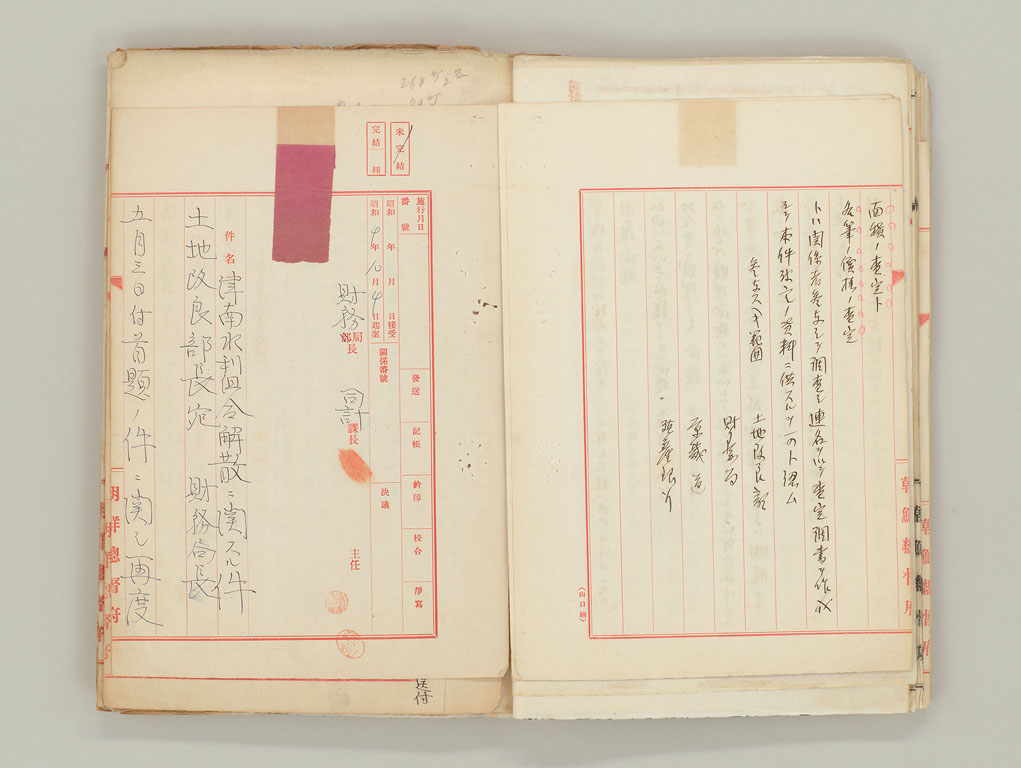 面積ノ査定ト
各筆ノ價格ノ査定
トハ関係者参与シテ調査シ連名ヲ以テ査定調書ヲ作成
シテ本件決定ノ資料ニ供スル
参与スヘキ範囲
土地改良部
財務局
京畿道
殖産銀行
(山口納)
朝鮮總督府
未完結
完結
種
施行月日
番號
發送
記帳
鈐印
校合
淨寫
昭和 年 月 日接受
昭和4年10月4日起案
關係番號
決議
財務局長
部
司計課長
主任
件名
津南水利組合解散ニ関スル件
土地改良部長宛 財務局長
五月三日付首題ノ件ニ関シ再度
朝鮮總督府
送付